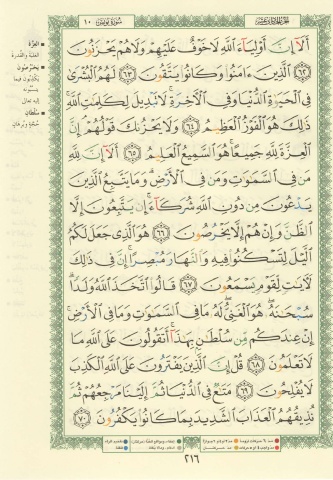 الجزء الحادي عشر
سورة يونس ١٠
أَلَآ إِنَّ أَوْلِيَآءَ ٱللَّهِ لَا خَوْفٌ عَلَيْهِمْ وَلَا هُمْ يَحْزَنُونَ
﴿٦٢﴾ ٱلَّذِينَ ءَامَنُوا۟ وَكَانُوا۟ يَتَّقُونَ ﴿٦٣﴾ لَهُمُ ٱلْبُشْرَىٰ
فِى ٱلْحَيَوٰةِ ٱلدُّنْيَا وَفِى ٱلْءَاخِرَةِ ۚ لَا تَبْدِيلَ لِكَلِمَٰتِ ٱللَّهِ ۚ
ذَٰلِكَ هُوَ ٱلْفَوْزُ ٱلْعَظِيمُ ﴿٦٤﴾ وَلَا يَحْزُنكَ قَوْلُهُمْ ۘ إِنَّ
ٱلْعِزَّةَ لِلَّهِ جَمِيعًا ۚ هُوَ ٱلسَّمِيعُ ٱلْعَلِيمُ ﴿٦٥﴾ أَلَآ إِنَّ لِلَّهِ
مَن فِى ٱلسَّمَٰوَٰتِ وَمَن فِى ٱلْأَرْضِ ۗ وَمَا يَتَّبِعُ ٱلَّذِينَ
يَدْعُونَ مِن دُونِ ٱللَّهِ شُرَكَآءَ ۚ إِن يَتَّبِعُونَ إِلَّا
ٱلظَّنَّ وَإِنْ هُمْ إِلَّا يَخْرُصُونَ ﴿٦٦﴾ هُوَ ٱلَّذِى جَعَلَ لَكُمُ
ٱلَّيْلَ لِتَسْكُنُوا۟ فِيهِ وَٱلنَّهَارَ مُبْصِرًا ۚ إِنَّ فِى ذَٰلِكَ
لَءَايَٰتٍ لِّقَوْمٍ يَسْمَعُونَ ﴿٦٧﴾ قَالُوا۟ ٱتَّخَذَ ٱللَّهُ وَلَدًا ۗ
سُبْحَٰنَهُۥ ۖ هُوَ ٱلْغَنِىُّ ۖ لَهُۥ مَا فِى ٱلسَّمَٰوَٰتِ وَمَا فِى ٱلْأَرْضِ ۚ
إِنْ عِندَكُم مِّن سُلْطَٰنٍۭ بِهَٰذَآ ۚ أَتَقُولُونَ عَلَى ٱللَّهِ مَا
لَا تَعْلَمُونَ ﴿٦٨﴾ قُلْ إِنَّ ٱلَّذِينَ يَفْتَرُونَ عَلَى ٱللَّهِ ٱلْكَذِبَ
لَا يُفْلِحُونَ ﴿٦٩﴾ مَتَٰعٌ فِى ٱلدُّنْيَا ثُمَّ إِلَيْنَا مَرْجِعُهُمْ ثُمَّ
نُذِيقُهُمُ ٱلْعَذَابَ ٱلشَّدِيدَ بِمَا كَانُوا۟ يَكْفُرُونَ ﴿٧٠﴾
العِزَّةَ
الغلبة والقدرة
يخرصون
يكذبون فيما
ينسبونه
إليه تعالى
سلطان
حجة وبرهان
٢١٦